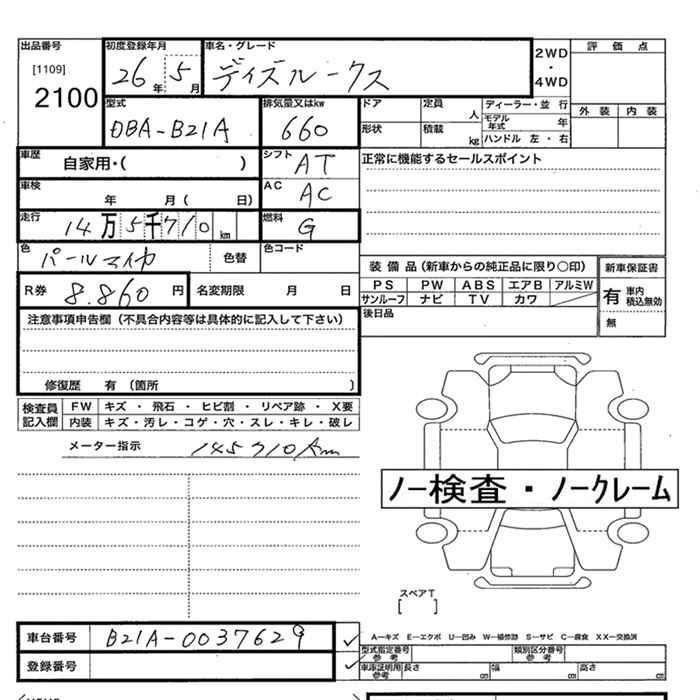 出品番号 初度登録年月 車名・グレード 2WD・4WD 評価点
[1109] 26年 5月 ディズルークス
2100 外装 内装
型式 排気量又はkw ドア 定員 人 ディーラー・並行
DBA-B21A 660 形状 積載 kg モデル年式 年
ハンドル 左・右
車歴 自家用・( ) シフト AT 正常に機能するセールスポイント
車検 年 月 ( 日) AC AC
走行 14万5千710km 燃料 G
色 パールマイカ 色替 色コード
装備品 (新車からの純正品に限り〇印) 新車保証書
R券 8.860円 名変期限 月 日 PS PW ABS エアB アルミW 有 車内積込無効
サンルーフ ナビ TV カワ
注意事項申告欄 (不具合内容等は具体的に記入して下さい) 後日品 無
修復歴 有 (箇所 )
検査員記入欄 FW キズ・飛石・ヒビ割・リペア跡・X要
内装 キズ・汚レ・コゲ・穴・スレ・キレ・破レ
メーター指示 145710km
ノー検査・ノークレーム
スペアT
[ ]
車台番号 B21A-0037629 A―キズ E―エクボ U―凹み W―補修跡 S―サビ C―腐食 XX―交換済
型式指定番号 参考 類別区分番号 参考
登録番号 車庫証明用参考 長さ cm 幅 cm 高さ cm